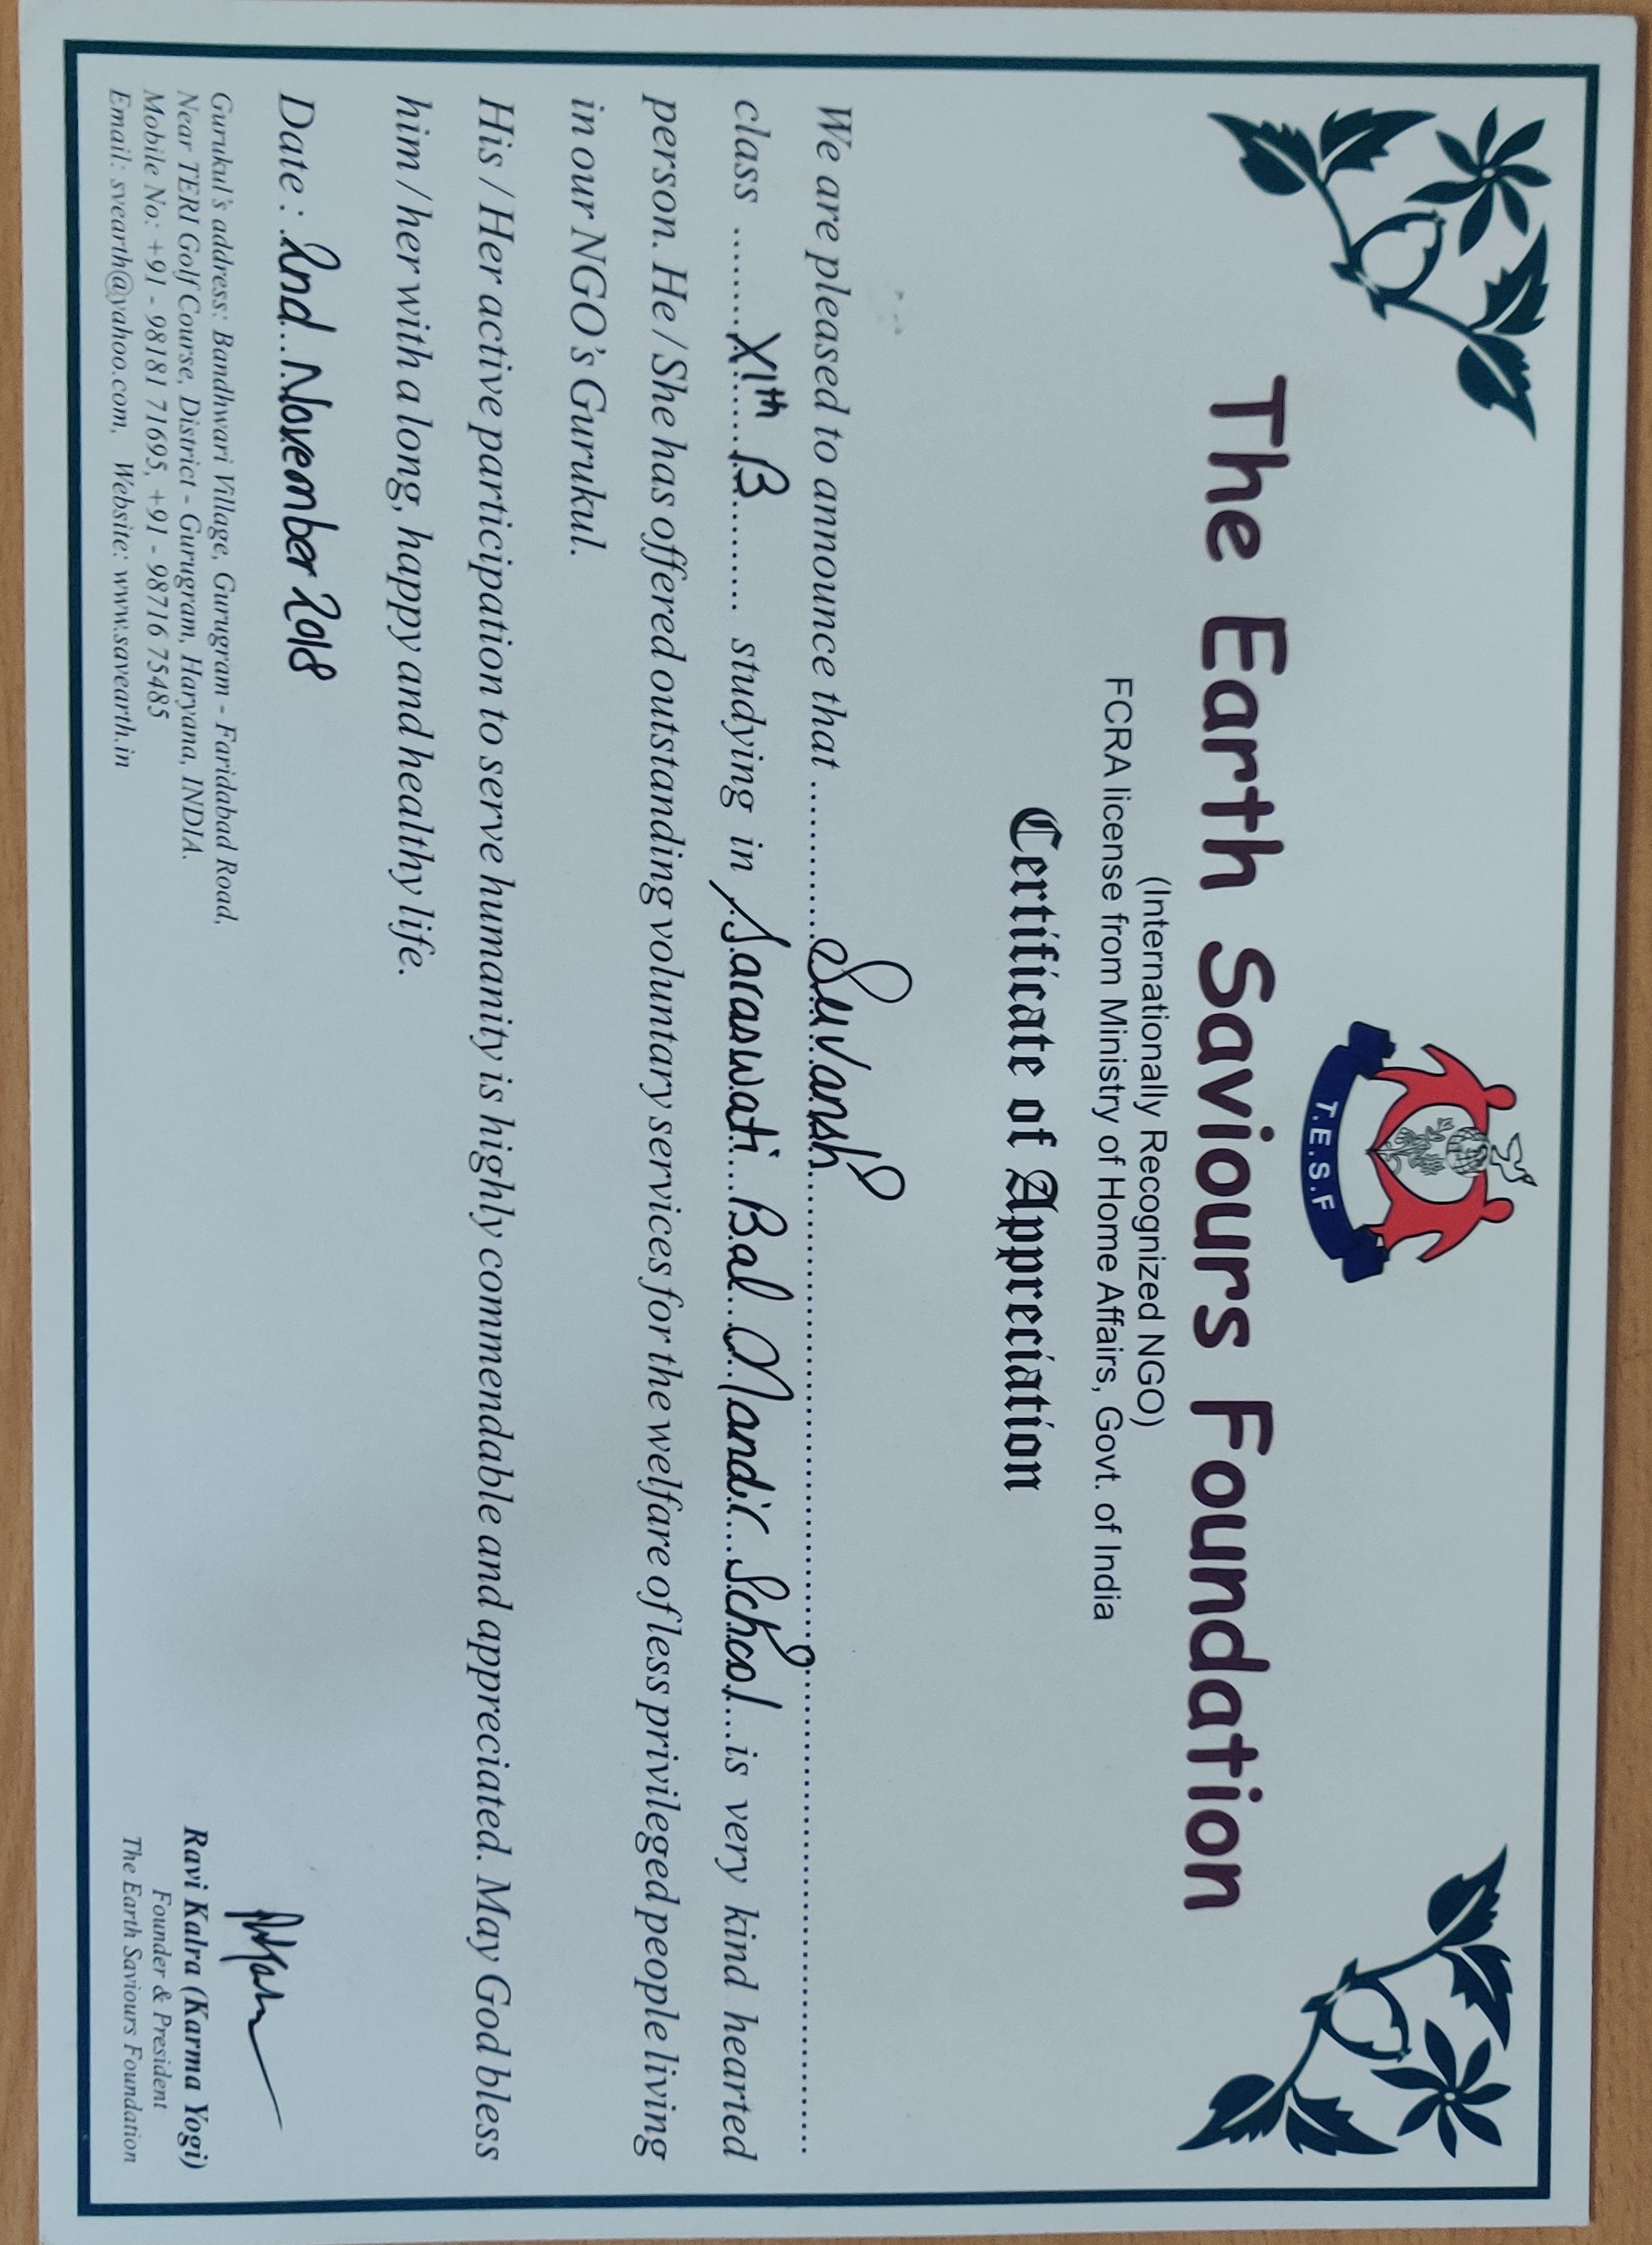 T.E.S.F
The Earth Saviours Foundation
(Internationally Recognized NGO)
FCRA license from Ministry of Home Affairs, Govt. of India
Certificate of Appreciation
We are pleased to announce that ............Suvansh............
class ........XIth B......... studying in Saraswati Bal Mandir School...is very kind hearted
person. He / She has offered outstanding voluntary services for the welfare of less privileged people living
in our NGO's Gurukul.
His / Her active participation to serve humanity is highly commendable and appreciated. May God bless
him / her with a long, happy and healthy life.
Date : 2nd November 2018
Gurukul's address: Bandhwari Village, Gurugram - Faridabad Road,
Near TERI Golf Course, District - Gurugram, Haryana, INDIA.
Mobile No: +91 - 98181 71695, +91 - 98716 75485
Email: svearth@yahoo.com, Website: www.savearth.in
Ravi Kalra (Karma Yogi)
Founder & President
The Earth Saviours Foundation